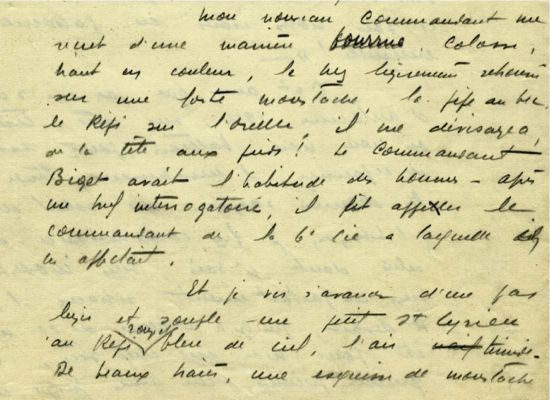 mon nouveau commandant me
reçut d'une manière bourrue colosse,
haut en couleur, le nez légèrement retroussé
sur une forte moustache, la pipe au bec
le Képi sur l'oreille, il me dévisagea,
de la tête aux pieds! Le Commandant
Biget avait l'habitude des hommes – après
un bref interrogatoire, il fit appeler le
commandant de la 6e Cie à laquelle il
m'affectait.
Et je vis s'avancer d'un pas
léger et souple – un petit St Cyrien
au Képi rouge et bleu de ciel, l'air naïf timide.
De beaux traits, une esquisse de moustache